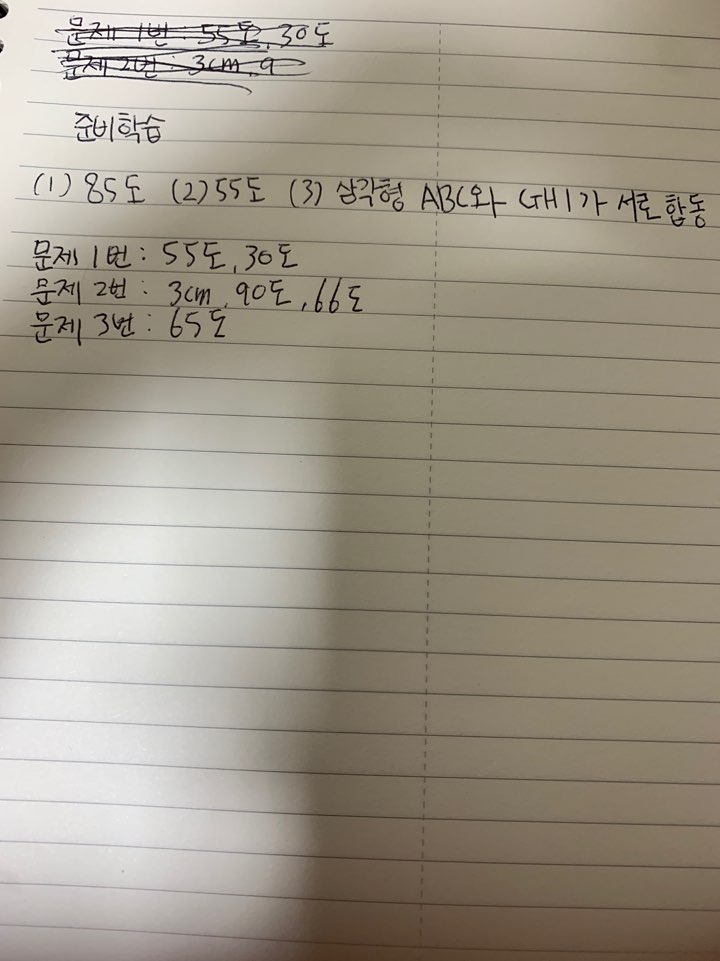 문제 1번: 55도, 30도
문제 2번: 3cm, 9
준비학습
(1) 85도 (2) 55도 (3) 삼각형 ABC와 GHI가 서로 합동
문제 1번: 55도, 30도
문제 2번: 3cm, 90도, 66도
문제 3번: 65도